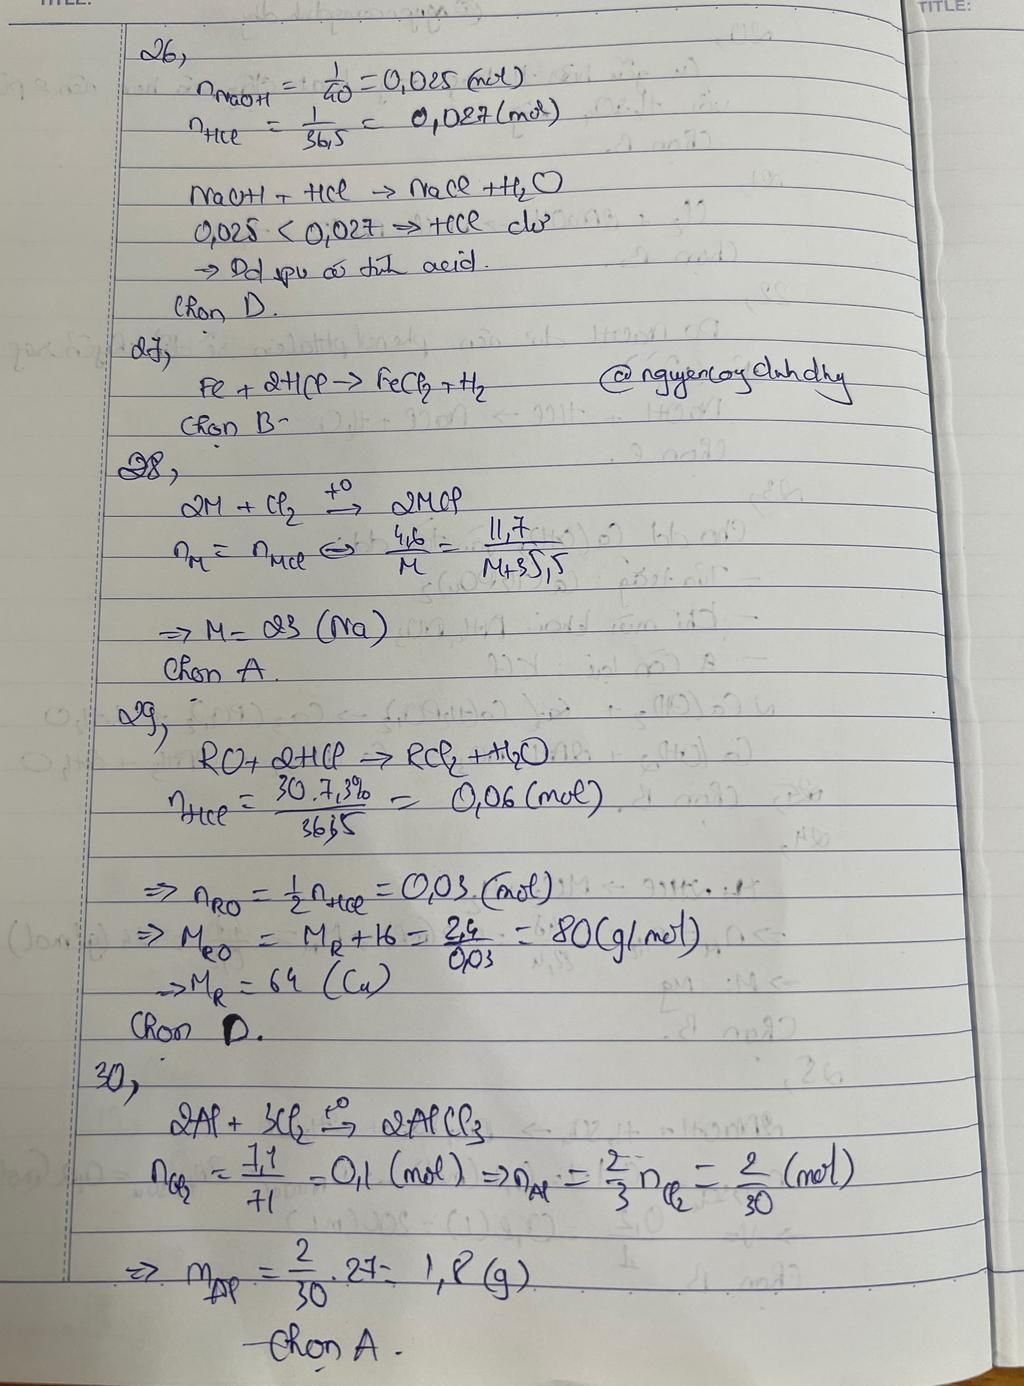 TITLE:
TITLE:
26,
nNaOH = 1/40 = 0,025 (mol)
nHCl = 1/36,5 = 0,027 (mol)
NaOH + HCl → NaCl + H₂O
0,025 < 0,027 ⇒ HCl dư
→ Dd spư có tính acid.
Chọn D.
27,
Fe + 2HCl → FeCl₂ + H₂
Chọn B
28,
2M + Cl₂ →(t°) 2MCl
nM = nMCl ⇔ 4,6/M = 11,7/M+35,5
⇒ M = 23 (Na)
Chọn A.
29,
RO + 2HCl → RCl₂ + H₂O
nHCl = 30.7,3%/36,5 = 0,06 (mol)
⇒ nRO = 1/2 nHCl = 0,03 (mol)
⇒ MRO = MR + 16 = 2,4/0,03 = 80 (g/mol)
⇒ MR = 64 (Cu)
Chọn D.
30,
2Al + 3Cl₂ →(t°) 2AlCl₃
nCl₂ = 7,1/71 = 0,1 (mol) ⇒ nAl = 2/3 nCl₂ = 2/30 (mol)
⇒ mAl = 2/30 . 27 = 1,8 (g)
Chọn A.